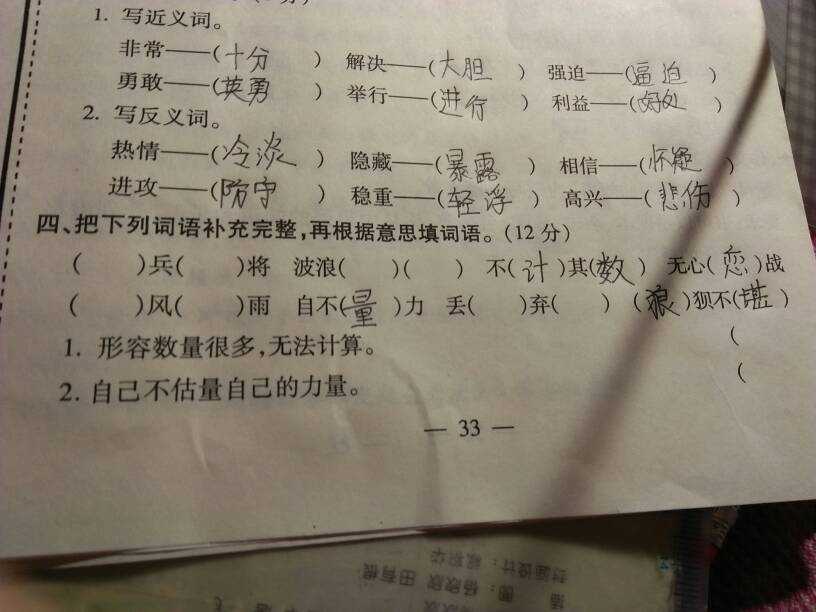 1. 写近义词。
非常——(十分) 解决——(大胆) 强迫——(逼迫)
勇敢——(英勇) 举行——(进行) 利益——(好处)
2. 写反义词。
热情——(冷淡) 隐藏——(暴露) 相信——(怀疑)
进攻——(防守) 稳重——(轻浮) 高兴——(悲伤)
四、把下列词语补充完整,再根据意思填词语。(12分)
( )兵( )将 波浪( )( ) 不(计)其(数) 无心(恋)战
( )风( )雨 自不(量)力 丢( )弃( ) (狼)狈不(堪)
1. 形容数量很多,无法计算。 (
2. 自己不估量自己的力量。 (
— 33 —
封面设计:
插 图:杨敬敬 田有根